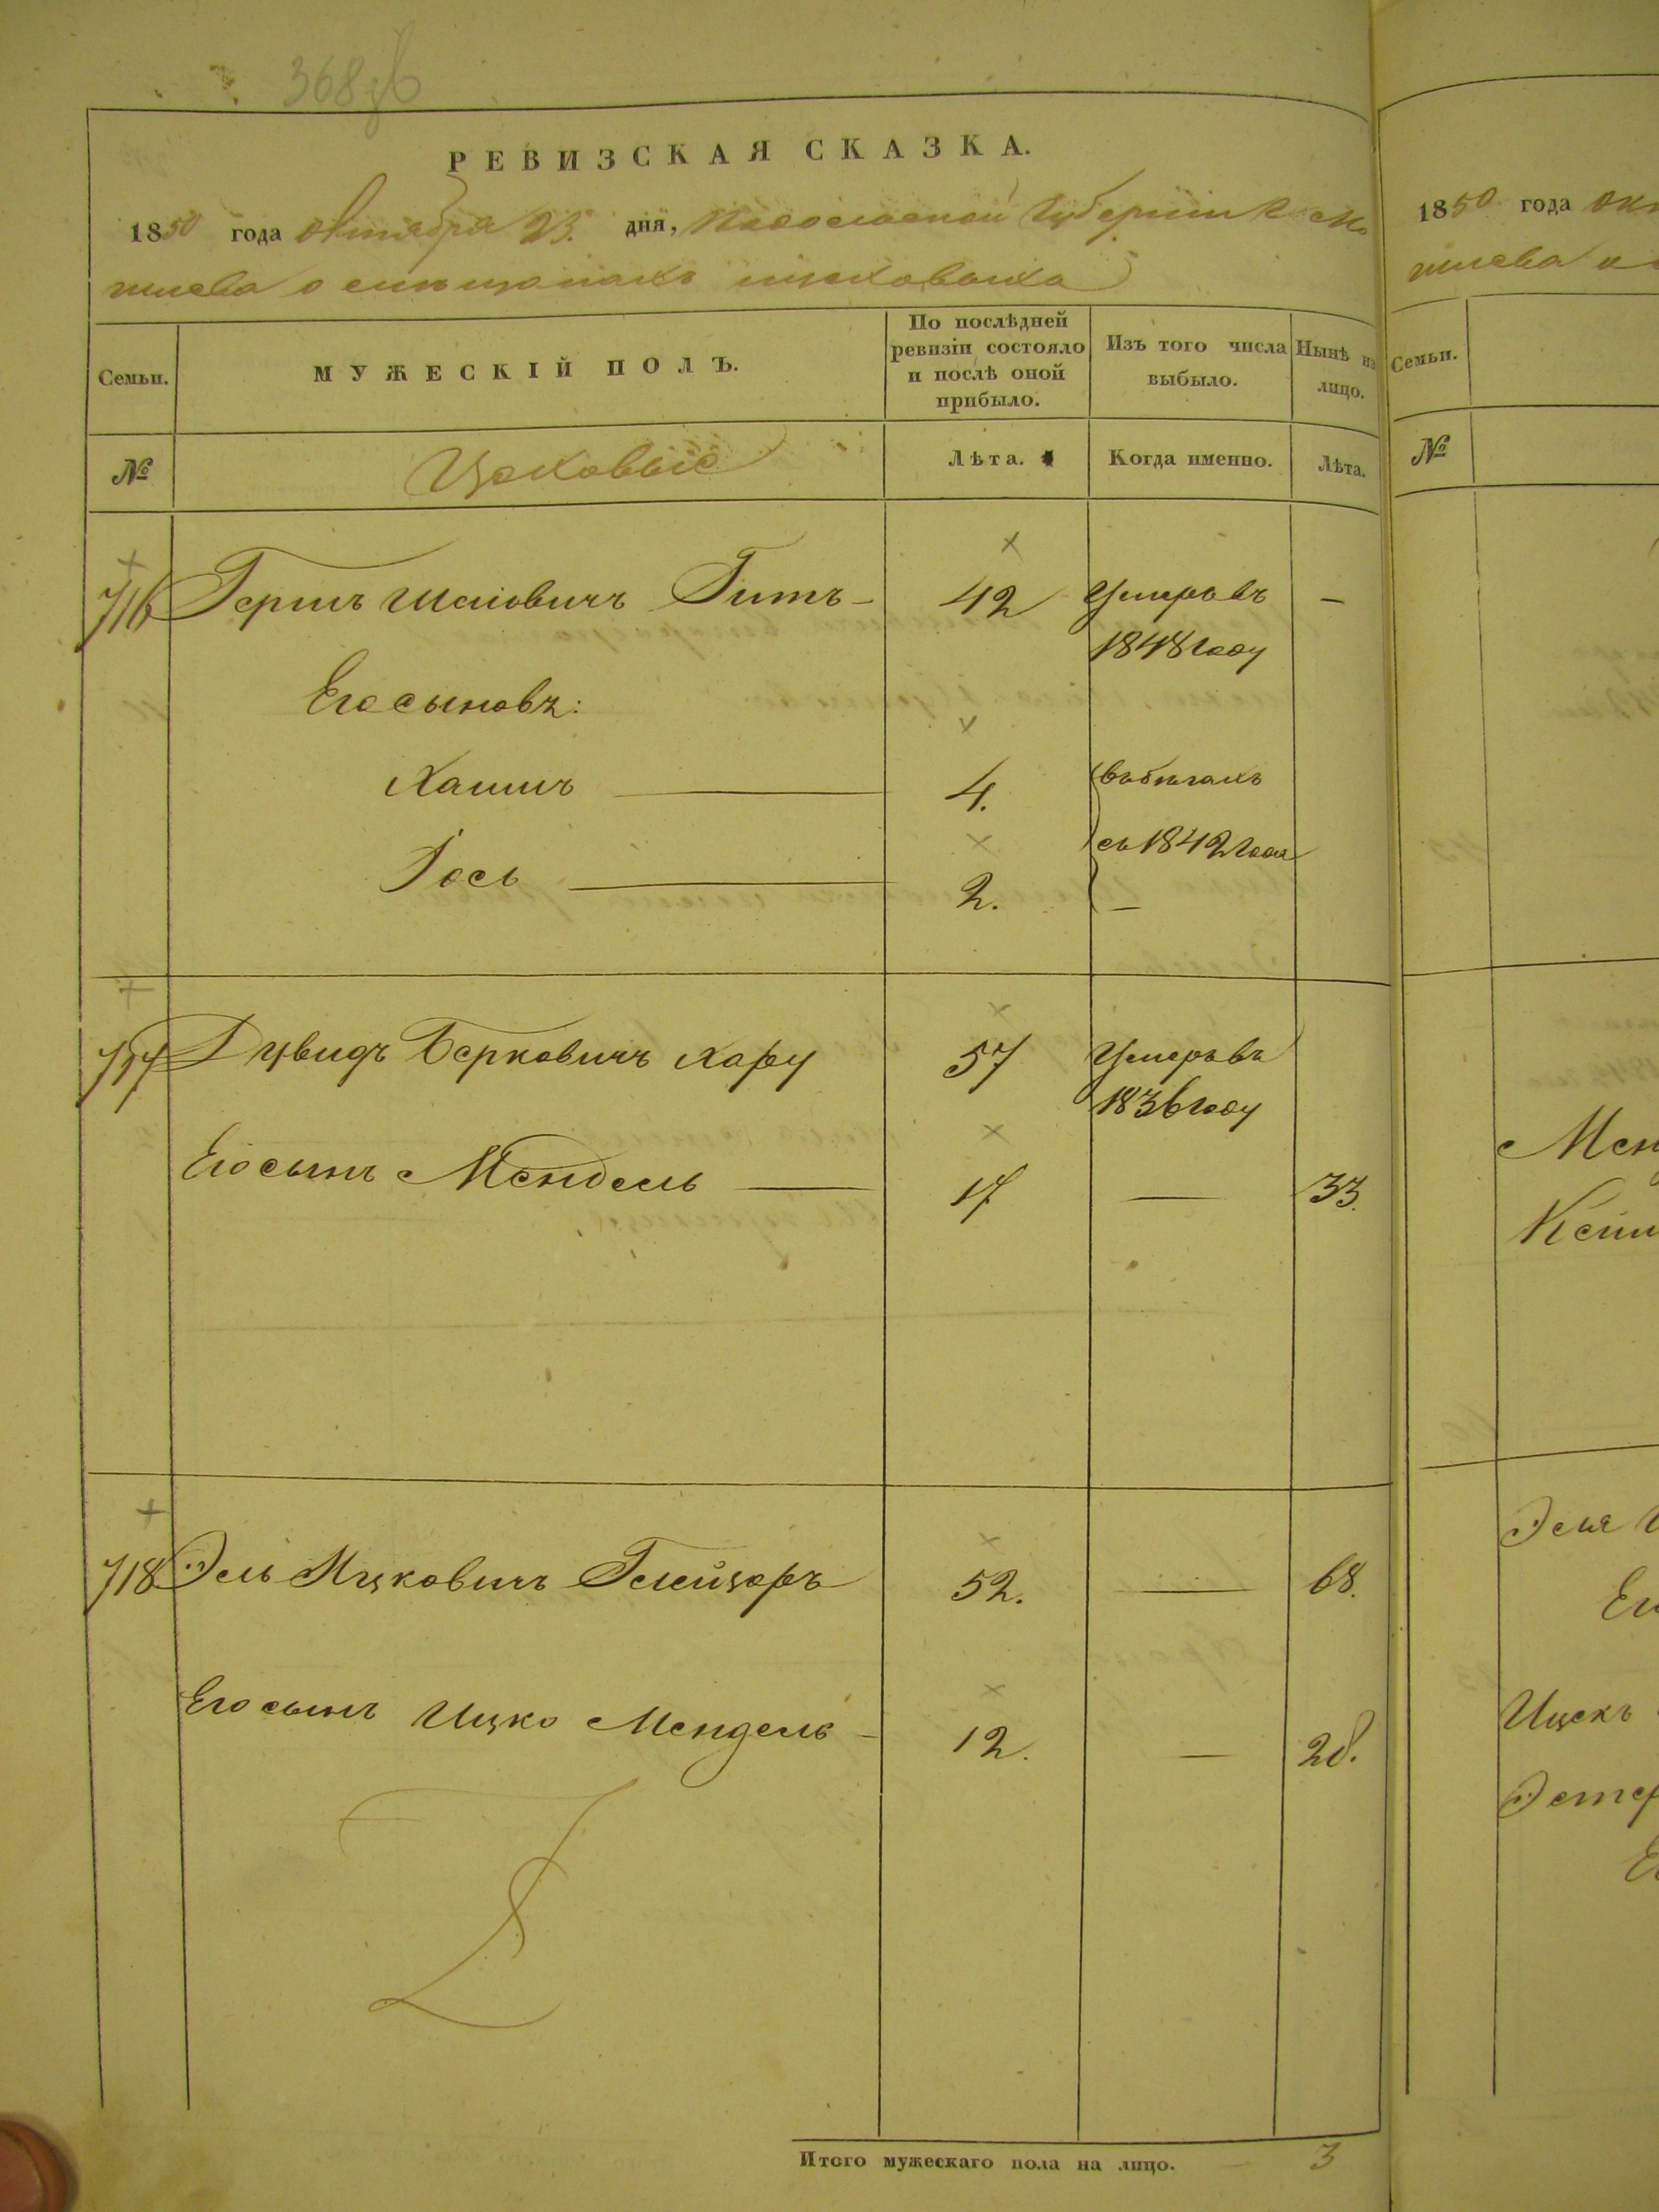 368 об
РЕВИЗСКАЯ СКАЗКА.
1850 года октября 23. дня, Подольской Губерніи
о мещанахъ цеховыхъ
Семьи.
МУЖЕСКІЙ ПОЛЪ.
По послѣдней ревизіи состояло и послѣ оной прибыло.
Изъ того числа выбыло.
Нынѣ на лицо.
№
Цеховые
Лѣта.
Когда именно.
Лѣта.
716 Гершъ Шаіовичъ Гитъ 42 Умеръ въ —
1848 году
Его сыновъ:
Хаимъ 4. въ бѣгахъ
съ 1842 года
Іось 2. —
717 Дувидъ Берковичъ 57 Умеръ въ
1836 году
Его сынъ Мендель 17 — 33.
718 Эль Ицковичъ Глейзеръ 52. — 68.
Его сынъ Ицко Мендель 12. — 28.
Итого мужескаго пола на лицо. 3
1850 года
Семьи.
№
Ицекъ